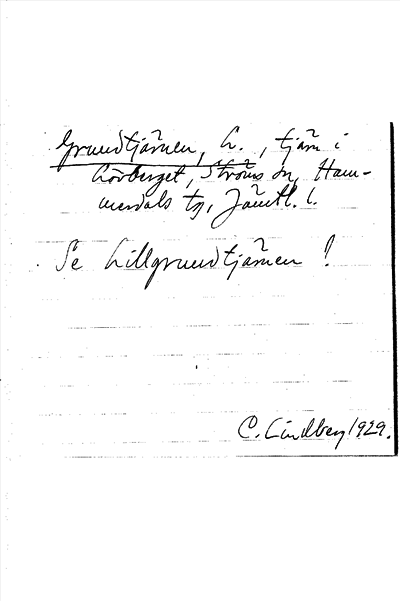 Grundtjärnen, L., tjärn i
Lövberget, Ströms sn, Ham-
merdals tg, Jämtl. l.
Se Lillgrundtjärnen!
C. Lindberg 1929.